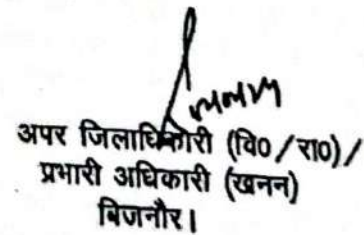 अपर जिलाधिकारी (वि0/रा0)/
प्रभारी अधिकारी (खनन)
बिजनौर।